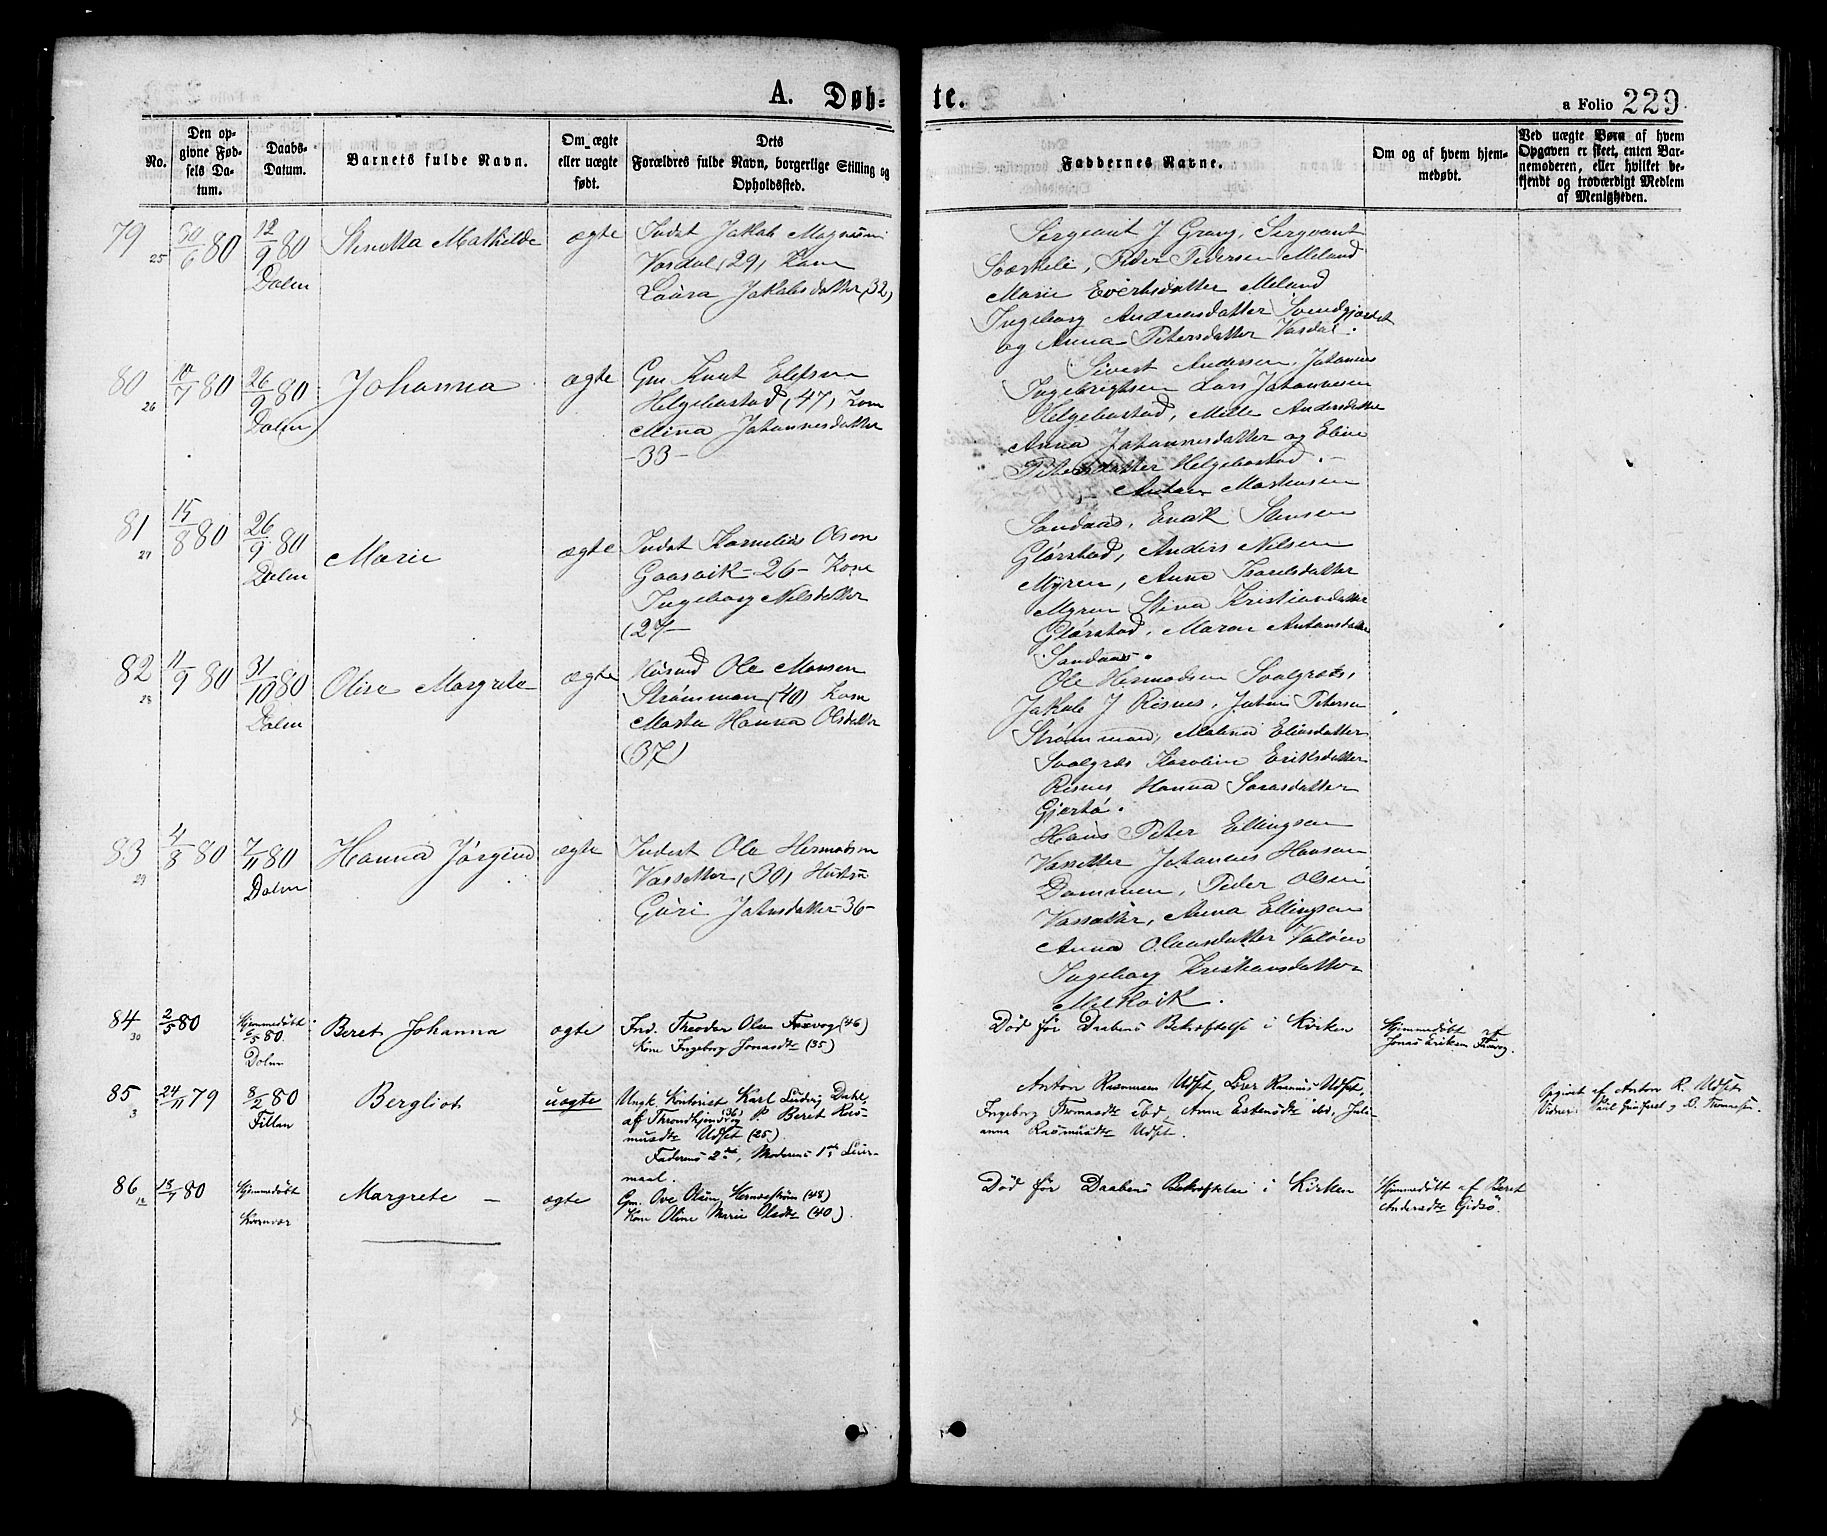 A. Døb-
te.
a Folio 229
No.
Den op-
givne Fød-
sels Da-
tum.
Daabs-
Datum.
Barnets fulde Navn.
Om ægte
eller uægte
født.
Dets
Forældres fulde Navn, borgerlige Stilling og
Opholdssted.
Faddernes Navne.
Om og af hvem hjem-
medøbt.
Ved uægte Børn af hvem
Opgaven er skeet, enten Bar-
nemoderen, eller hvilket be-
kjendt og troværdigt Medlem
af Menigheden.
79
25
30/6 80
12/9 80
Dolm
Mathilde
ægte
Indst Jakob
Vasdal (29) Kone
Laura Jakobsdatter (32)
Sergeant J Grong, Sergeant
Peter Pedersen Meland
Marie Evertsdatter Meland
Ingeborg Andreasdatter
og Anna Petersdatter Vasdal.
80
26
/7 80
26/9 80
Dolm
Johanna
ægte
Gm Knut Elefsen
Helgebostad (47) Kone
Mina Johannesdatter
-33-
Sivert Andersen, Johannes
Ingebrigtsen Lars Johannesen
Helgebostad, Andersdatter
Anna Johannesdatter og Eline
Petersdatter Helgebostad.
81
27
15/8 80
26/9 80
Dolm
Marie
ægte
Indst Kornelius Olsen
Gaasvik -26- Kone
Ingeborg Nilsdatter
(27-
Anton Mortensen
Sandaas, Enok Stensen
Glørstad, Anders Nilsen
Myren, Anne Israelsdatter
Myren Stina Kristiansdatter
Glørstad, Maren Antonsdatter
Sandaas.
82
28
11/9 80
31/10 80
Dolm
Oline Margrete
ægte
Husmd Ole Monsen
Strømmen (40) Kone
Marta Hanna Olsdatter
(37)
Ole Hermodsen Svalgræs,
Jakob J Risnes, Petersen
Malena Eliasdatter
Svalgræs Karoline Eriksdatter
Risnes Hanna
83
29
4/8 80
7/11 80
Dolm
Hanna Jørgine
ægte
Inderst Ole Hermodsen
Vassetter, (30) Hustru
Guri Johnsdatter -36-
Hans Peter Ellingsen
Vassetter Johannes Hansen
Dammen, Peder Olsen
Vassetter, Anna Ellingsen
Anna Olausdatter
Ingeborg Kristiansdatter
84
30
2/5 80
Hjemmedøbt
6/5 80.
Dolm
Beret Johanna
ægte
Ind. Theodor Olsen Faxvog (46)
Kone Ingeborg Jonasdtr (35)
Død før Daabens Bekræftelse i Kirken
Hjemmedøbt af
Jonas Eriksen Faxvog.
85
3
24/11 79
8/2 80
Fillan
Bergliot
uægte
Ungk Kontorist Karl Ludvig Dahl,
af Throndhjem (36) og P. Beret Ras-
musdtr Udset (25).
Faderens 2det, Moderens 1ste Leier-
maal.
Anton Rasmussen Udset, Rasmus Udset,
Ingeborg Thomasdtr ibd, Anne Estensdtr ibd, Joh-
anna Rasmusdtr Udset.
Opgivet af Anton R. Udset
86
12
18/1 80
Hjemmedøbt
Margrete —
ægte
Gm. Ove Olsen, (48)
Kone Oline Marie Olsdtr (40).
Død før Daabens Bekræftelse i Kirken
Hjemmedøbt af Beret
Andersdtr Gidsø.